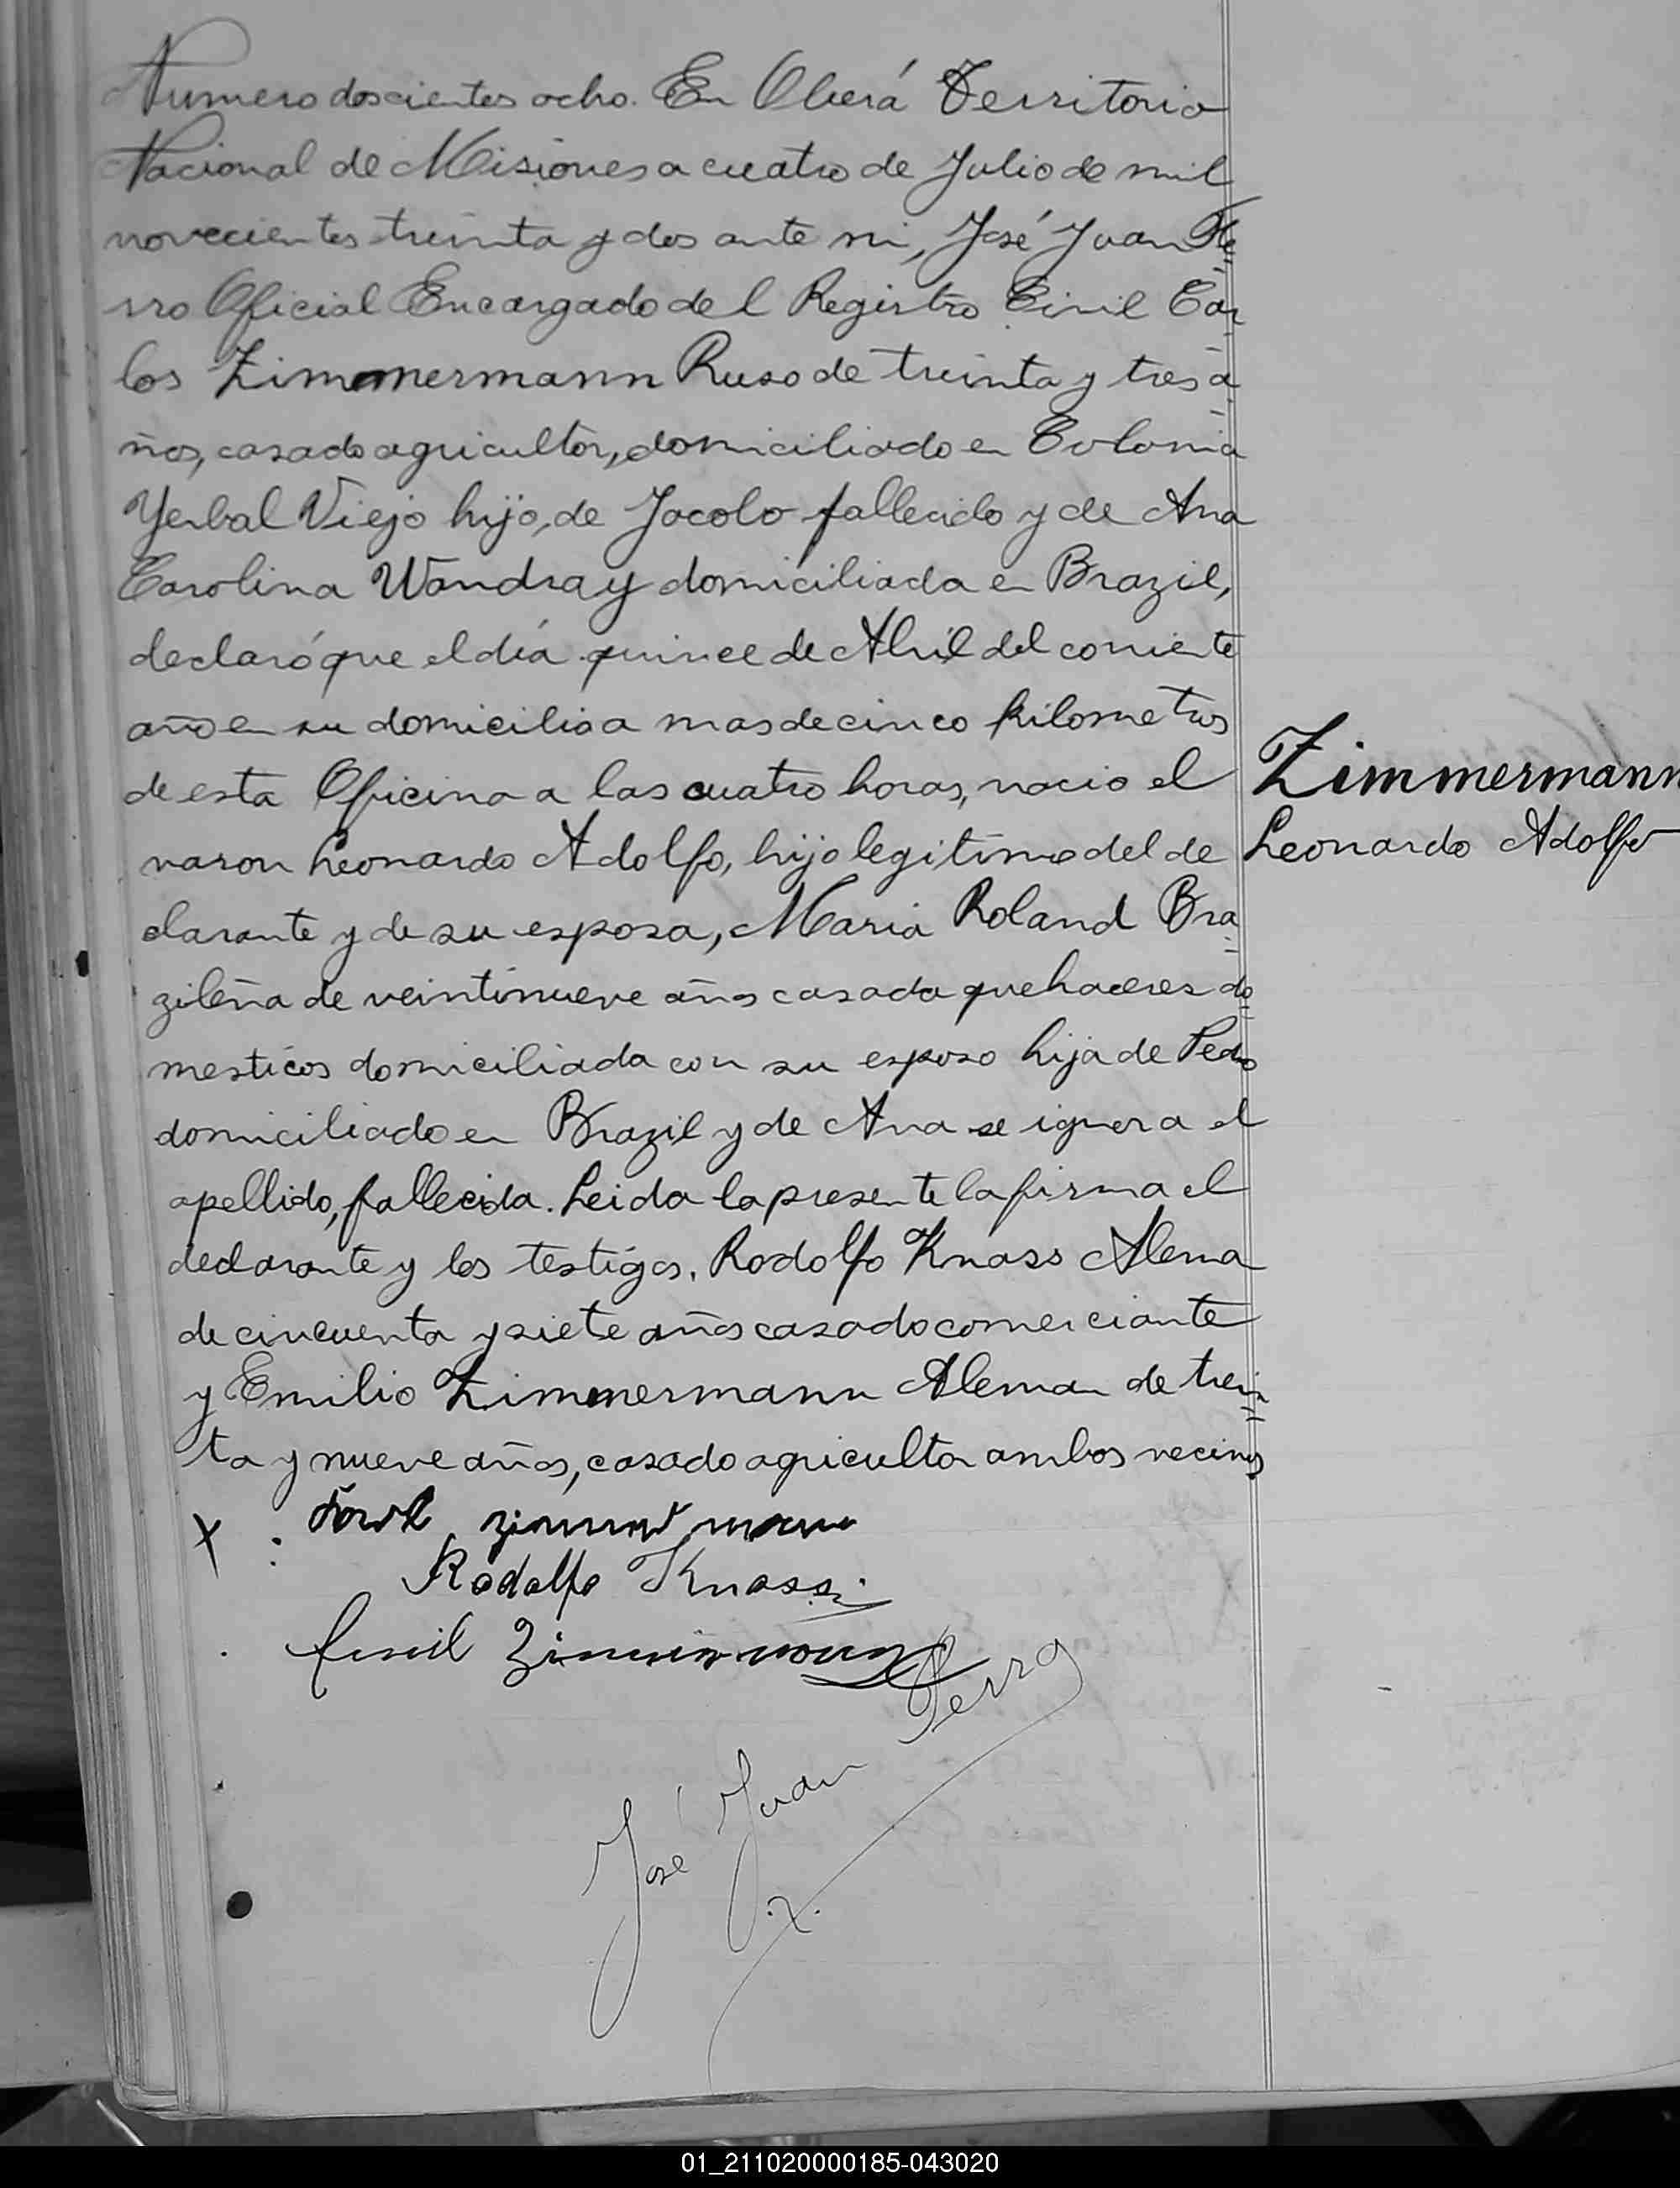 Numero doscientos ocho. En Oberá Territorio
Nacional de Misiones a cuatro de Julio de mil
novecientos treinta y dos ante mi, José Juan Fe=
rro Oficial Encargado del Registro Civil Car=
los Zimmermann Ruso de treinta y tres a=
ños, casado agricultor, domiciliado en Colonia
Yerbal Viejo hijo, de Jacobo fallecido y de Ana
Carolina Wandray domiciliada en Brazil,
declaró que el día quince de Abril del corriente
año en su domicilio a mas de cinco kilometros
de esta Oficina a las cuatro horas, nacio el
varon Leonardo Adolfo, hijo legitimo del de
clarante y de su esposa, Maria Roland Bra=
zileña de veintinueve años casada quehaceres do=
mesticos domiciliada con su esposo hija de Pedro
domiciliado en Brazil y de Ana se ignora el
apellido, fallecida. Leida la presente la firma el
declarante y los testigos. Rodolfo Knass Alema
de cincuenta y siete años casado comerciante
y Emilio Zimmermann Aleman de trein=
ta y nueve años, casado agricultor ambos vecinos
Zimmermann
Leonardo Adolfo
X
Rodolfo Knass
Emil Zimmermann
José Juan Ferro
01_211020000185-043020